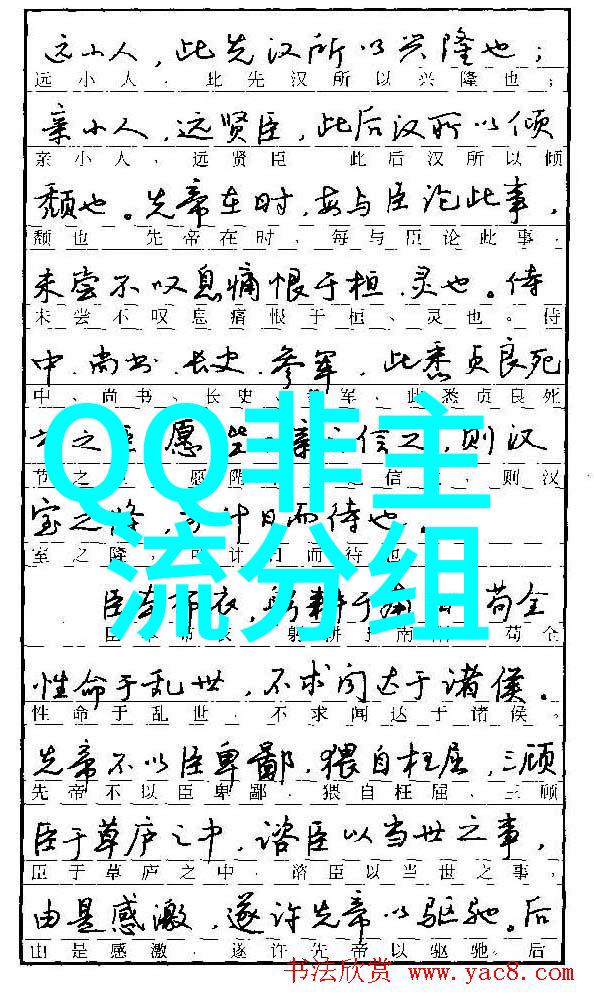 远小人，此先汉所以兴隆也；
远小人，此先汉所以兴隆也；
亲小人，远贤臣，此后汉所以倾
亲小人，远贤臣 此后汉所以倾
颓也。先帝在时，每与臣论此事，
颓也 先帝在时，每与臣论此事，
未尝不叹息痛恨于桓、灵也。侍
未尝不叹息痛恨于桓、灵也。侍
中、尚书、长史、参军，此悉贞良死
中、尚书、长史、参军，此悉贞良死
之 愿 亲 信之，则汉
节之 愿陛 之信 ，则汉
室之隆，可计日而待也。
室之隆，可计日而待也
QQ非主
流分组
臣本布衣，躬耕于南 苟全
臣 布衣 躬耕于南 苟全
性命于乱世，不求闻达于诸侯。
性命于乱世，不求闻达于诸侯。
先帝不以臣卑鄙，猥自枉屈，三顾
先帝不以臣卑鄙，猥自枉屈、三顾
臣于草庐之中，谘臣以当世之事，
臣于草庐之中，谘臣以当世之事，
由是感激，遂许先帝以驱驰。后
由是感激，遂许先帝以驱驰。后
书法欣赏 www.yac8.com